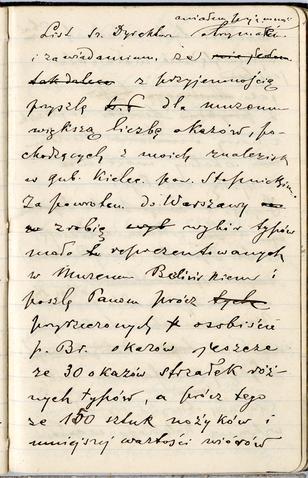 List Sz. Dyrektor otrzymałem
i zawiadamiam, że nie jestem
tak daleko z przyjemnością
przyszlę dla muzeum
większą liczbę okazów, po-
chodzących z moich znalezisk
w gub. Kielec. pow. Stopnickim
Za powrotem do Warszawy
zrobię wyb wybór typów
mało reprezentowanych
w Muzeum i
poszlę Panom prócz tych
przyrzeczonych osobiście
p. Br. okazów jeszcze
ze 30 okazów strzałek róż-
nych typów, a prócz tego
ze 150 sztuk nożyków i
mniejszej wartości wiórów